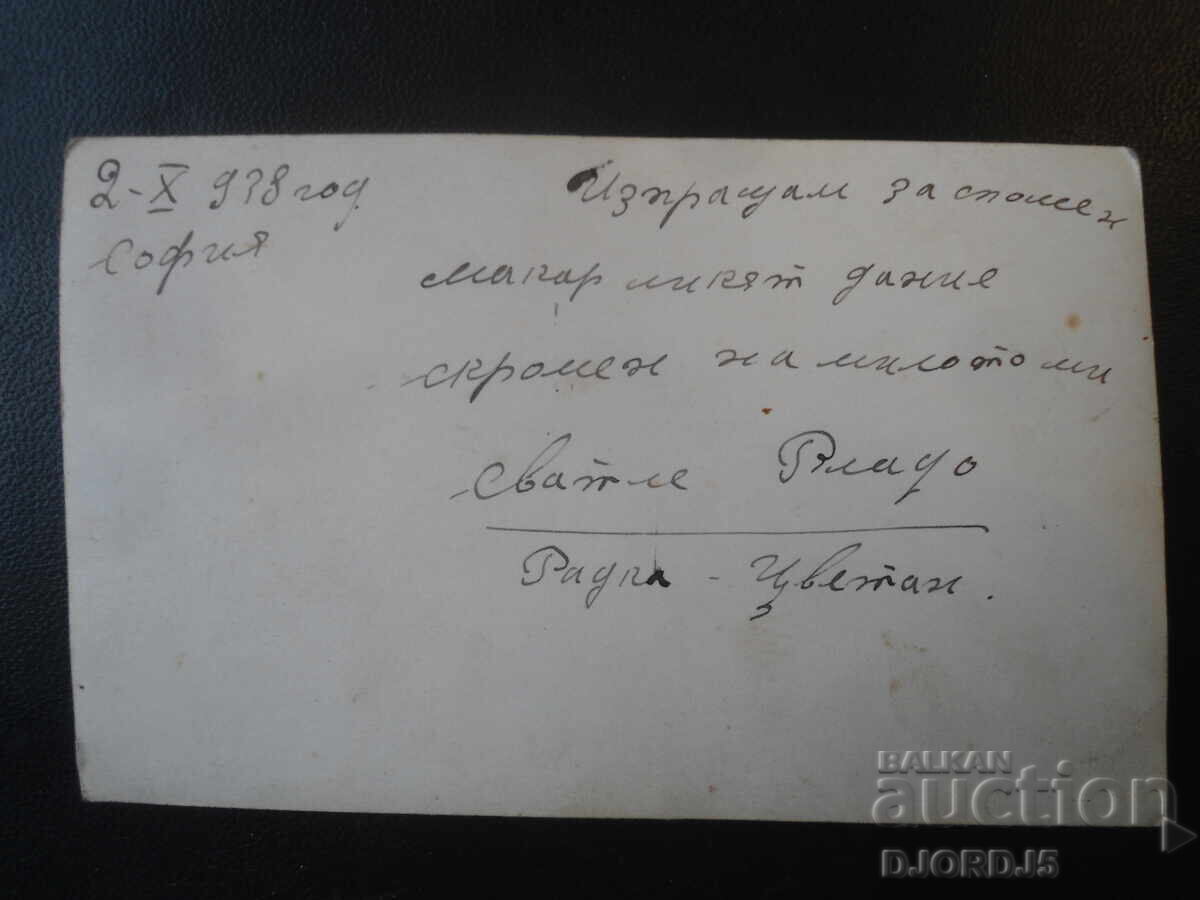 2-X 938 год
София
Изпращам за спомен
макар ликят да не е
скромен на милото ми
сватле Владо
Радка - Цветан.
BALKAN
auction
DJORDJ5